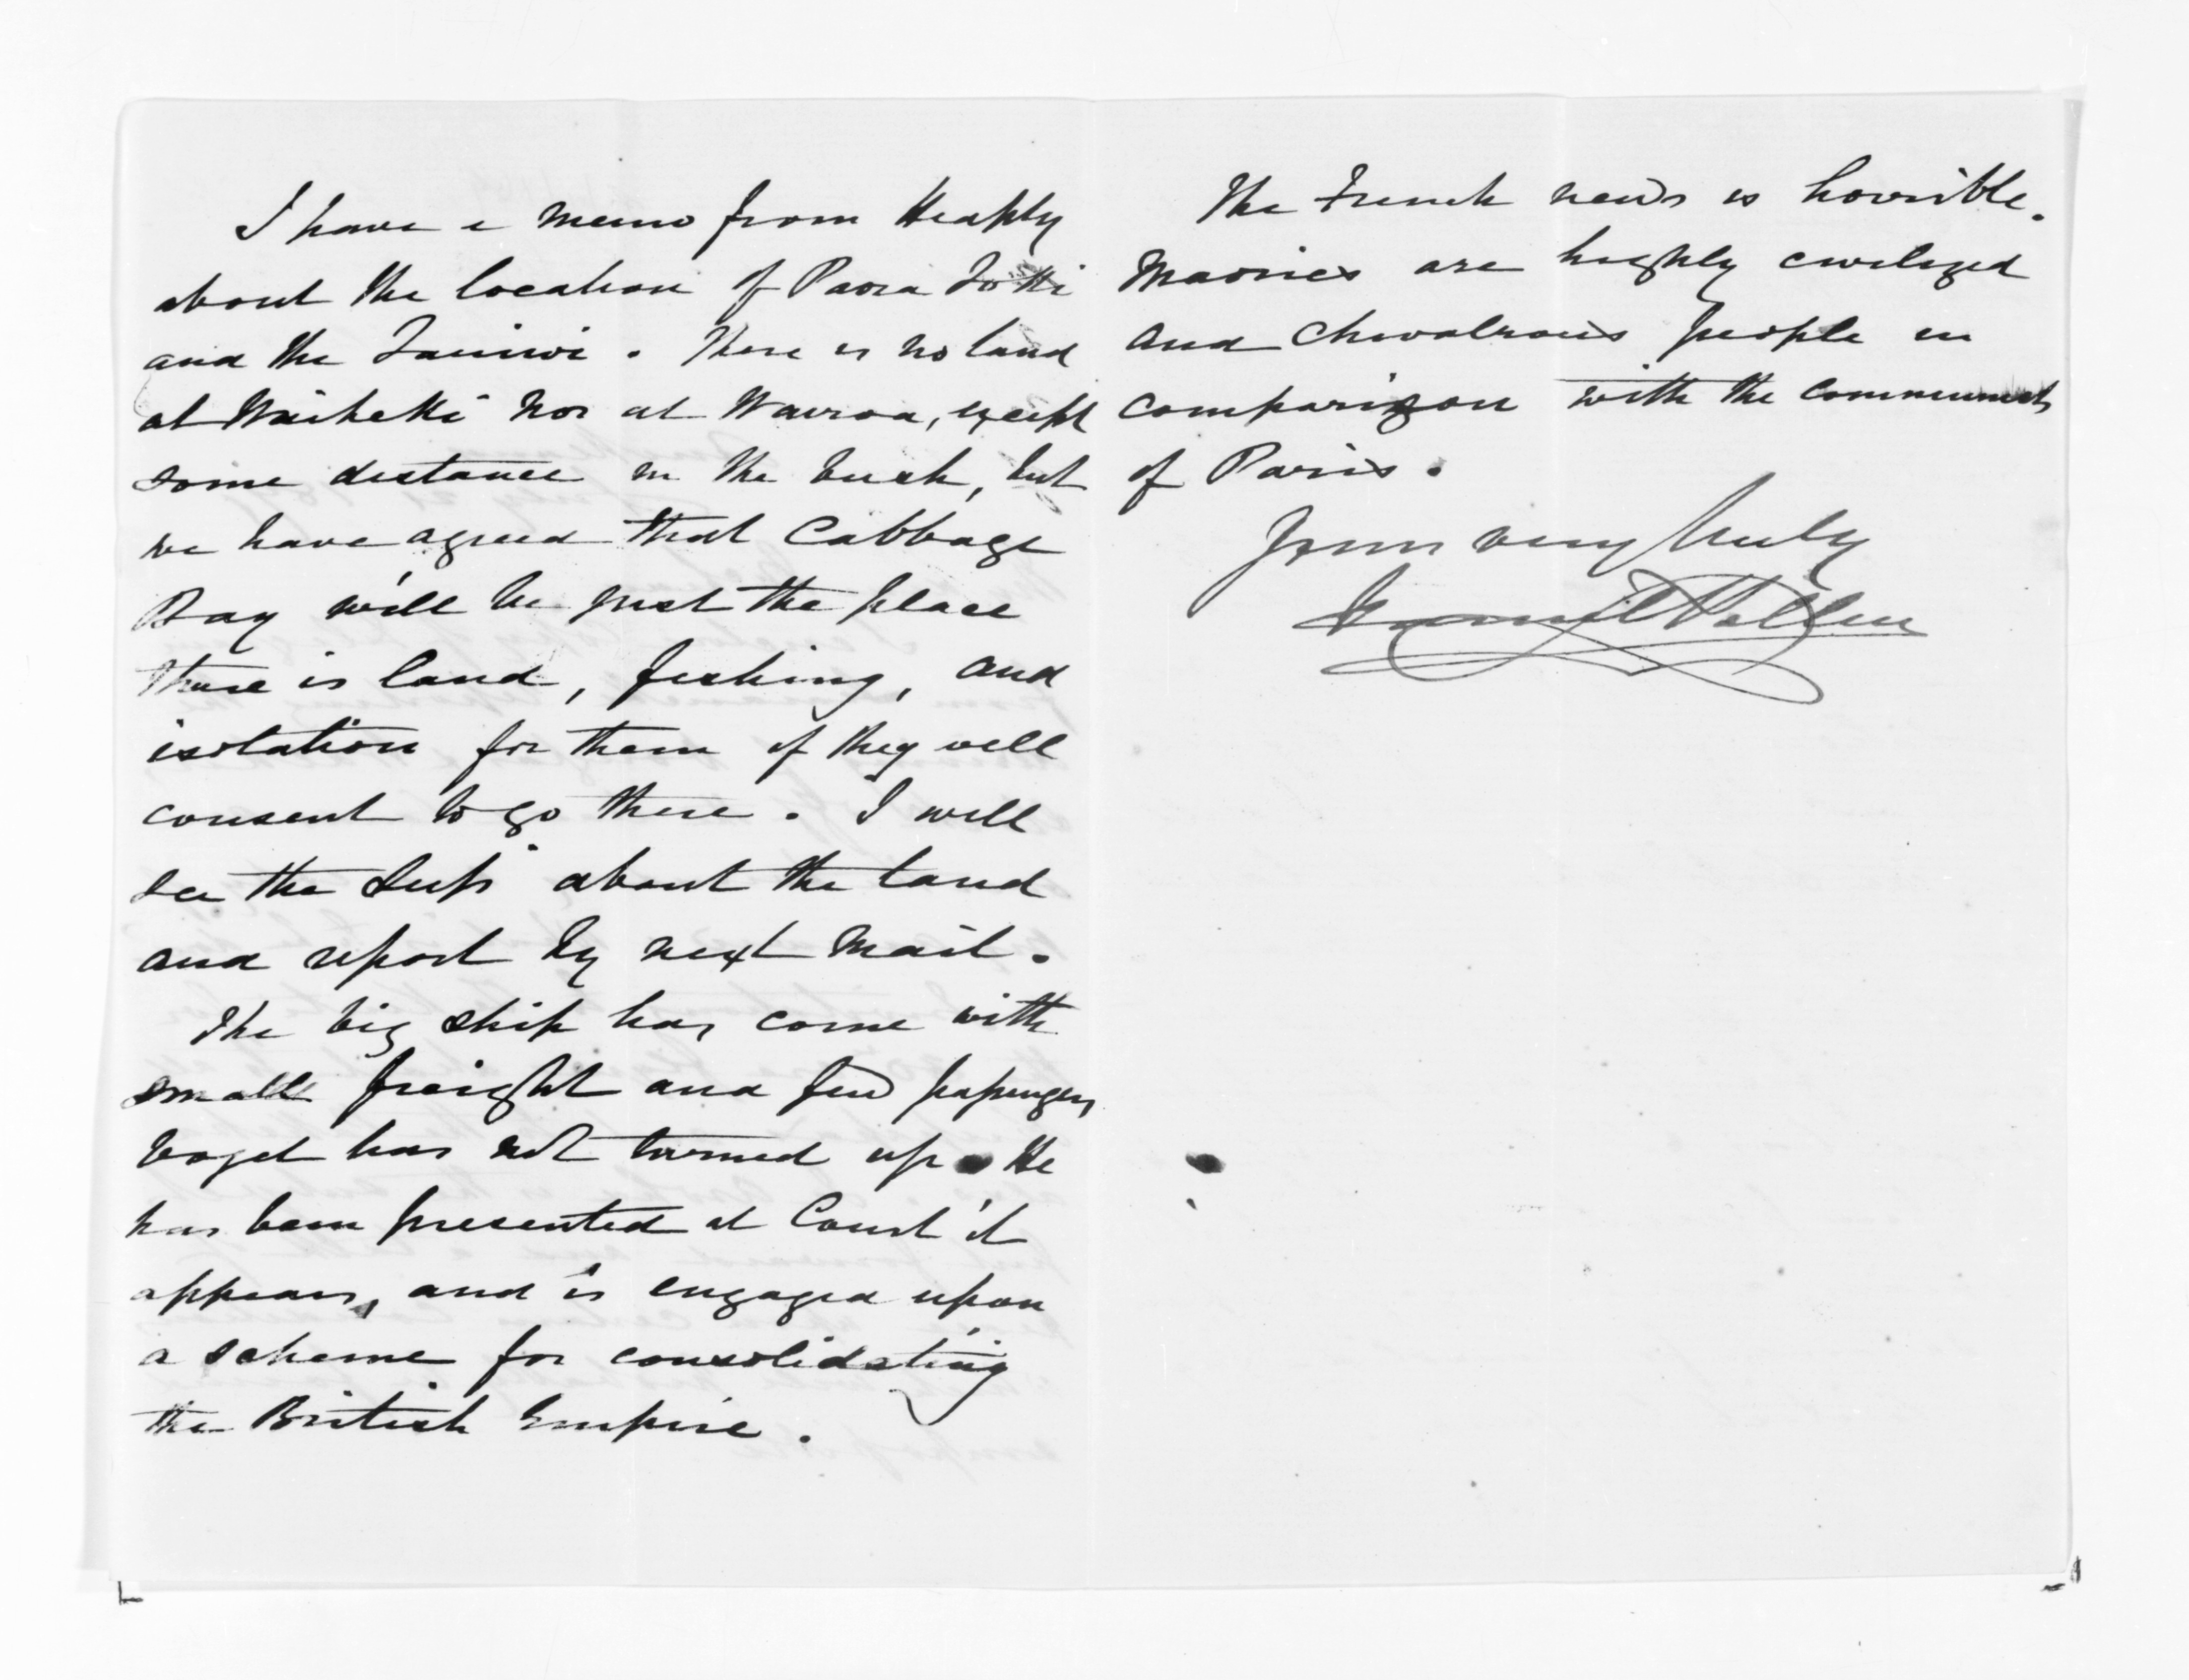 I have a memo from Heaphy
about the location of Paora
and the Tainui. There is no land
at Waiheke nor at Wairoa, except
some distance in the bush, but
we have agreed that Cabbage
Bay will be just the place
there is land, fishing, and
isolation for them if they will
consent to go there. I will
see the Supt about the land
and report by next mail.
The big ship has come with
small freight and few passengers
Vogel has not turned up. He
has been presented at Court it
appears, and is engaged upon
a scheme for consolidating
the British Empire.
The French news is horrible.
Maories are highly civilized
and chivalrous people in
comparizon with the communists
of Paris.
Yours very truly
Daniel Pollen